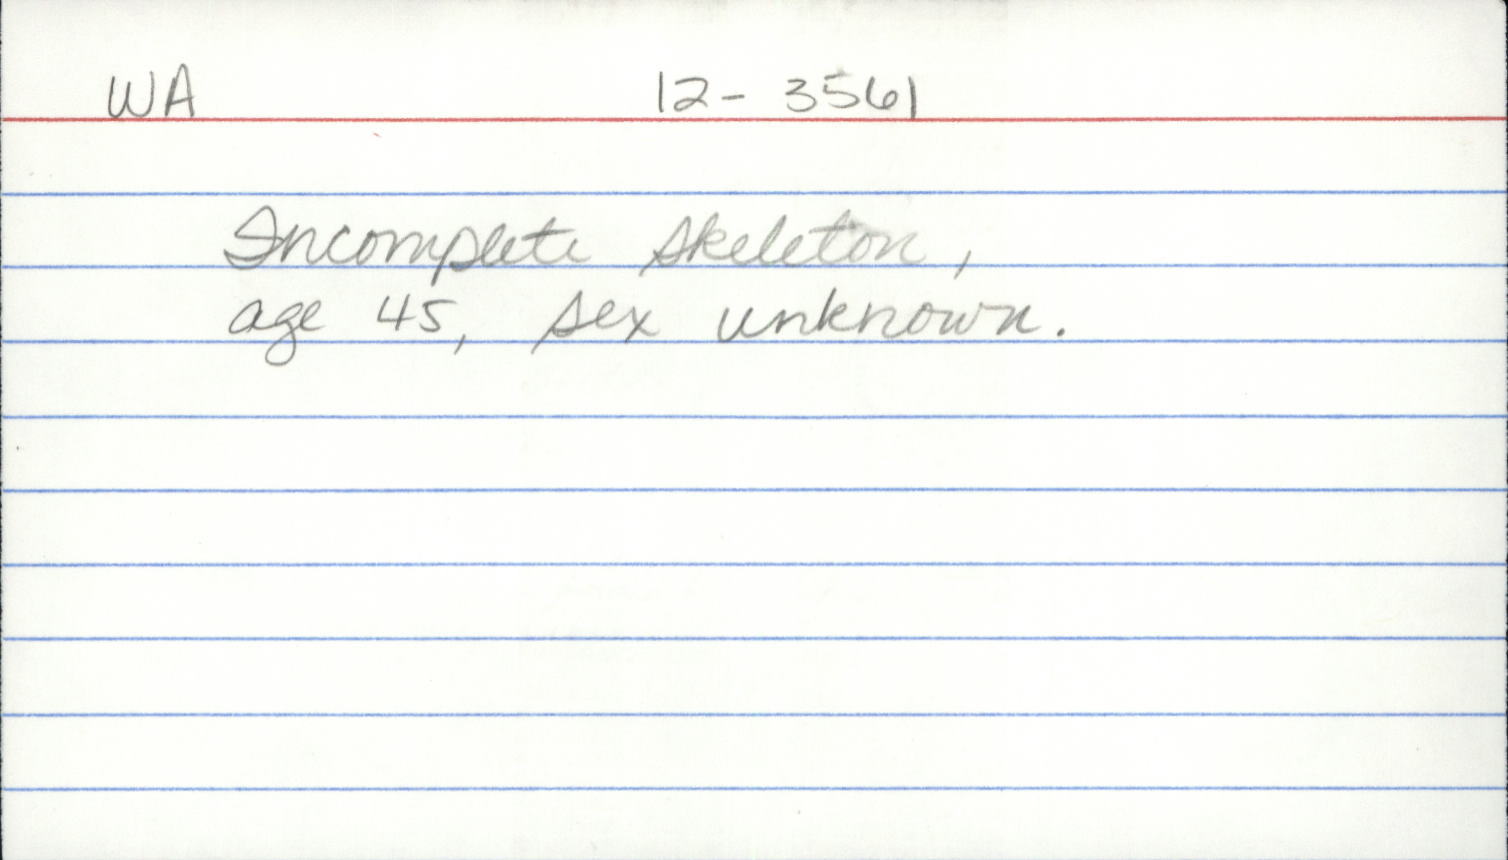 WA 12-3561
Incomplete skeleton,
age 45, sex unknown.